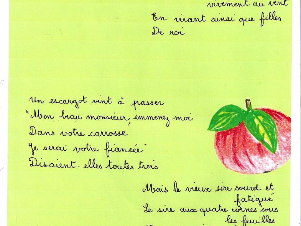 vivement au vent
En riant ainsi que filles
De roi
Un escargot vint à passer
"Mon beau monsieur, emmenez moi
Dans votre carrosse
Je serai votre fiancée"
Disaient-elles toutes trois
Mais le vieux sire sourd et
fatigué
Le sire aux quatre cornes sous
les feuilles